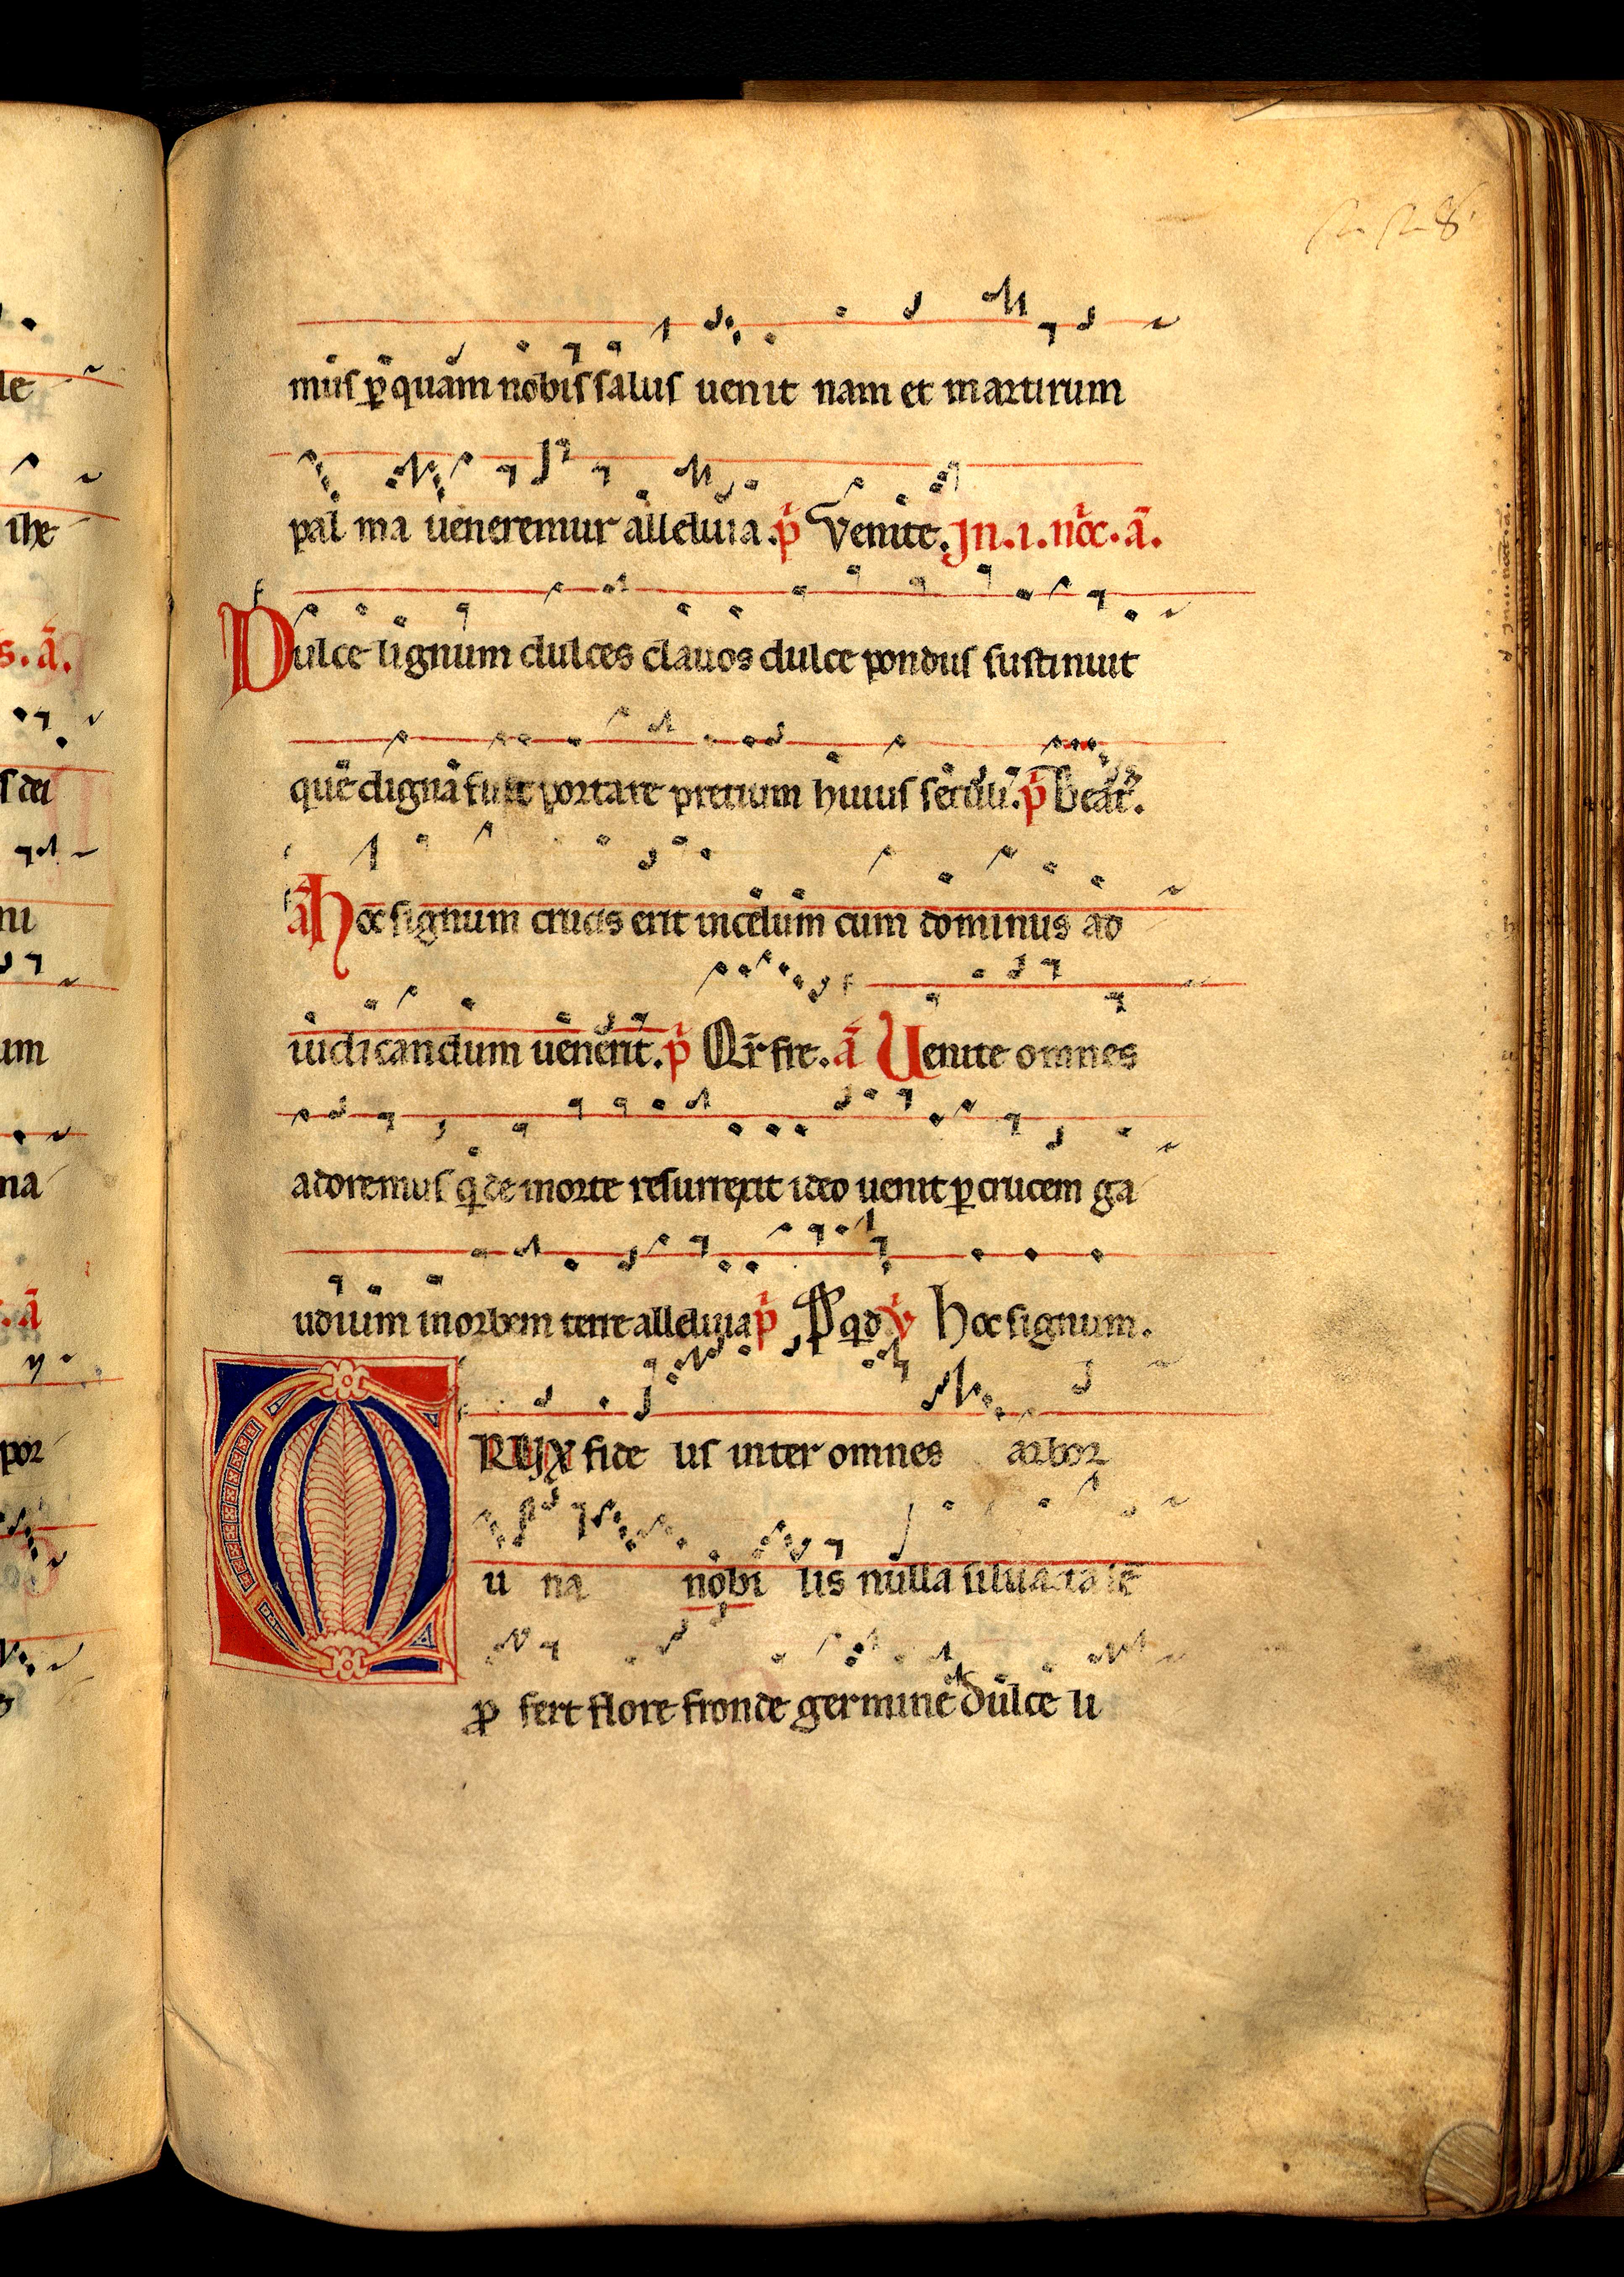 228
mus p̄ quam nobis salus uenit nam et martirum
pal ma ueneremur alleluia. p̄ Venite. Jn. i. noc̄. ā.
Dulce lignum dulces clauos dulce pondus sustinuit
que digna fuit portare pretium huius seculi. p̄ beat̄.
ā hoc signum crucis erit in celum cum dominus ad
iudicandum uenerit. p̄ Qr̄ fre. ā Uenite omnes
adoremus q̄ de morte resurrexit ideo uenit p̄ crucem ga
udium in orbem terre alleluia p̄ qd v̄ hoc signum.
CRUX fide us inter omnes arbor
u na nobi lis nulla silua tale
ꝓ fert flore fronde germine dulce li